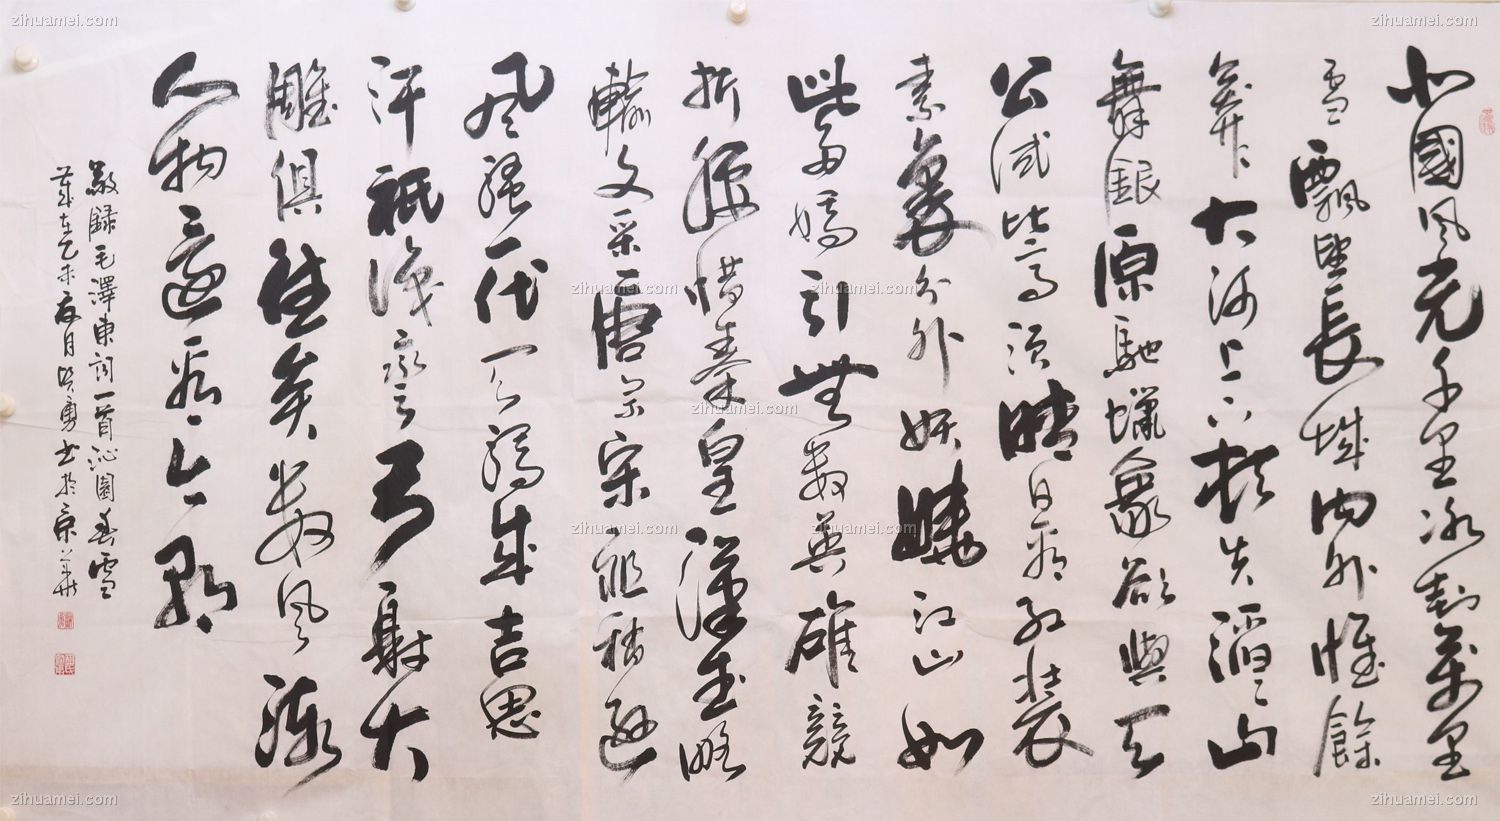 北國風光千里冰封萬里
雪飄望長城内外惟餘
莽々大河上下頓失滔々山
舞銀原馳蠟象欲與天
公試比高須晴日看紅裝
素裹分外妖嬈江山如
此多嬌引無數英雄競
折腰惜秦皇漢武略
輸文采唐宗宋祖稍遜
風騷一代天驕成吉思
汗祇識彎弓射大
雕俱往矣數風流
人物還看今朝
敬録毛澤東詞一首沁園春雪
歲在乙未夏月勇書於京華
zihuamei.com
zihuamei.com
zihuamei.com
zihuamei.com
zihuamei.com
zihuamei.com
zihuamei.com
zihuamei.com
zihuamei.com
zihuamei.com
zihuamei.com